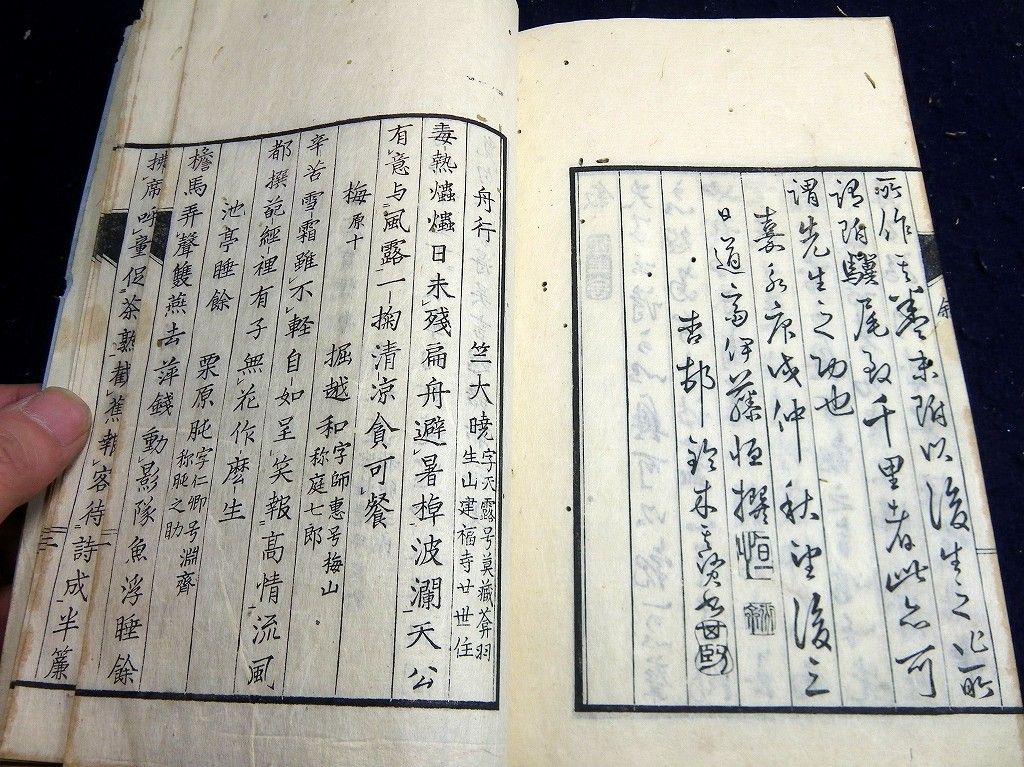 所作
末附以後生之
謂附驥尾致千里者此亦可
謂先生之功也
嘉永庚戌仲秋望後三
日道齋伊藤恒撰
恒
舟行
竺大曉
字天露号莫藏
生山建福寺廿世住
毒熱爞爞日未殘扁舟避暑棹波瀾天公
有意与風露一掬清凉貪可餐
梅
原十
堀越和
字師惠号梅山
称庭七郎
辛苦雪霜雖不輕自如呈笑報高情流風
都撰葩經裡有子無花作麽生
池亭睡餘
栗原肫
字仁卿号淵齋
称肫之助
檐馬弄聲雙燕去萍錢動影隊魚浮睡餘
拂席呼童促茶熟
客待詩成半簾